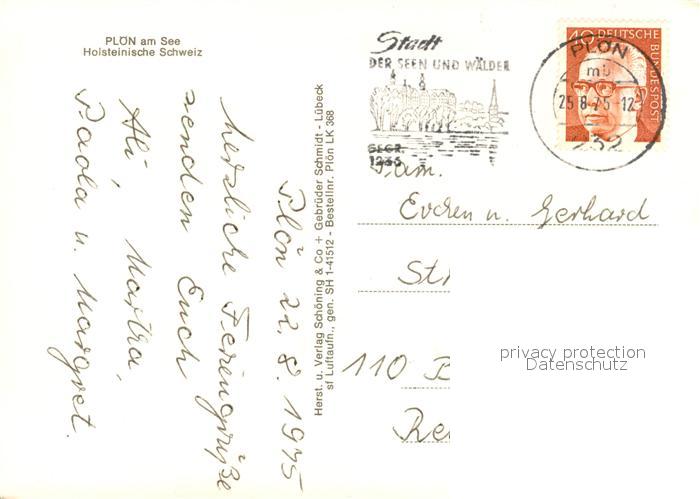 PLÖN am See
Holsteinische Schweiz
Plön 22.8.1975
herzliche Feriengrüße
senden Euch
Ali, Martha,
Paola u. Margret.
Herst. u. Verlag Schöning & Co + Gebrüder Schmidt - Lübeck
sf Luftaufn., gen. SH 1-41512 - Bestellnr. Plön LK 368
Stadt
DER SEEN UND WÄLDER
GEGR.
1236
40 DEUTSCHE
BUNDESPOST
PLÖN
mb
25.8.75-12
232
Fam.
Evchen u. Gerhard
St
110 B
Re
privacy protection
Datenschutz